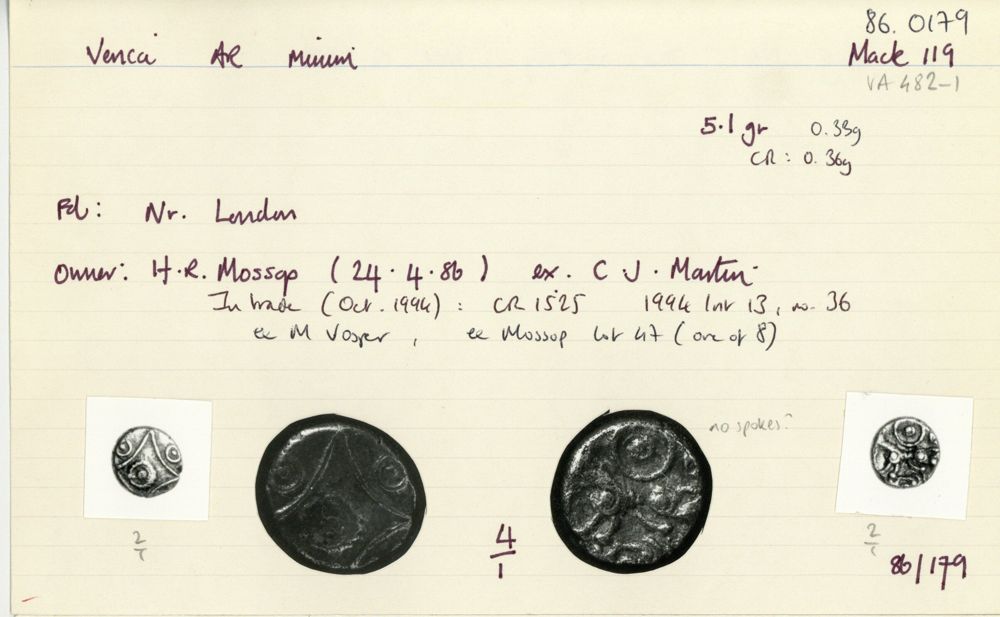 86. 0179
Verica AR Minim
Mack 119
VA 482-1
5.1 gr 0.33g
CR: 0.36g
Fd: Nr. London
Owner: H.R. Mossop (24.4.86) ex. C.J. Martin
In trade (Oct. 1994): CR 1525 1994 list 13, no. 36
ex M Vosper, ex Mossop lot 47 (one of 8)
no spokes?
2/1
4/1
2/1
86/179